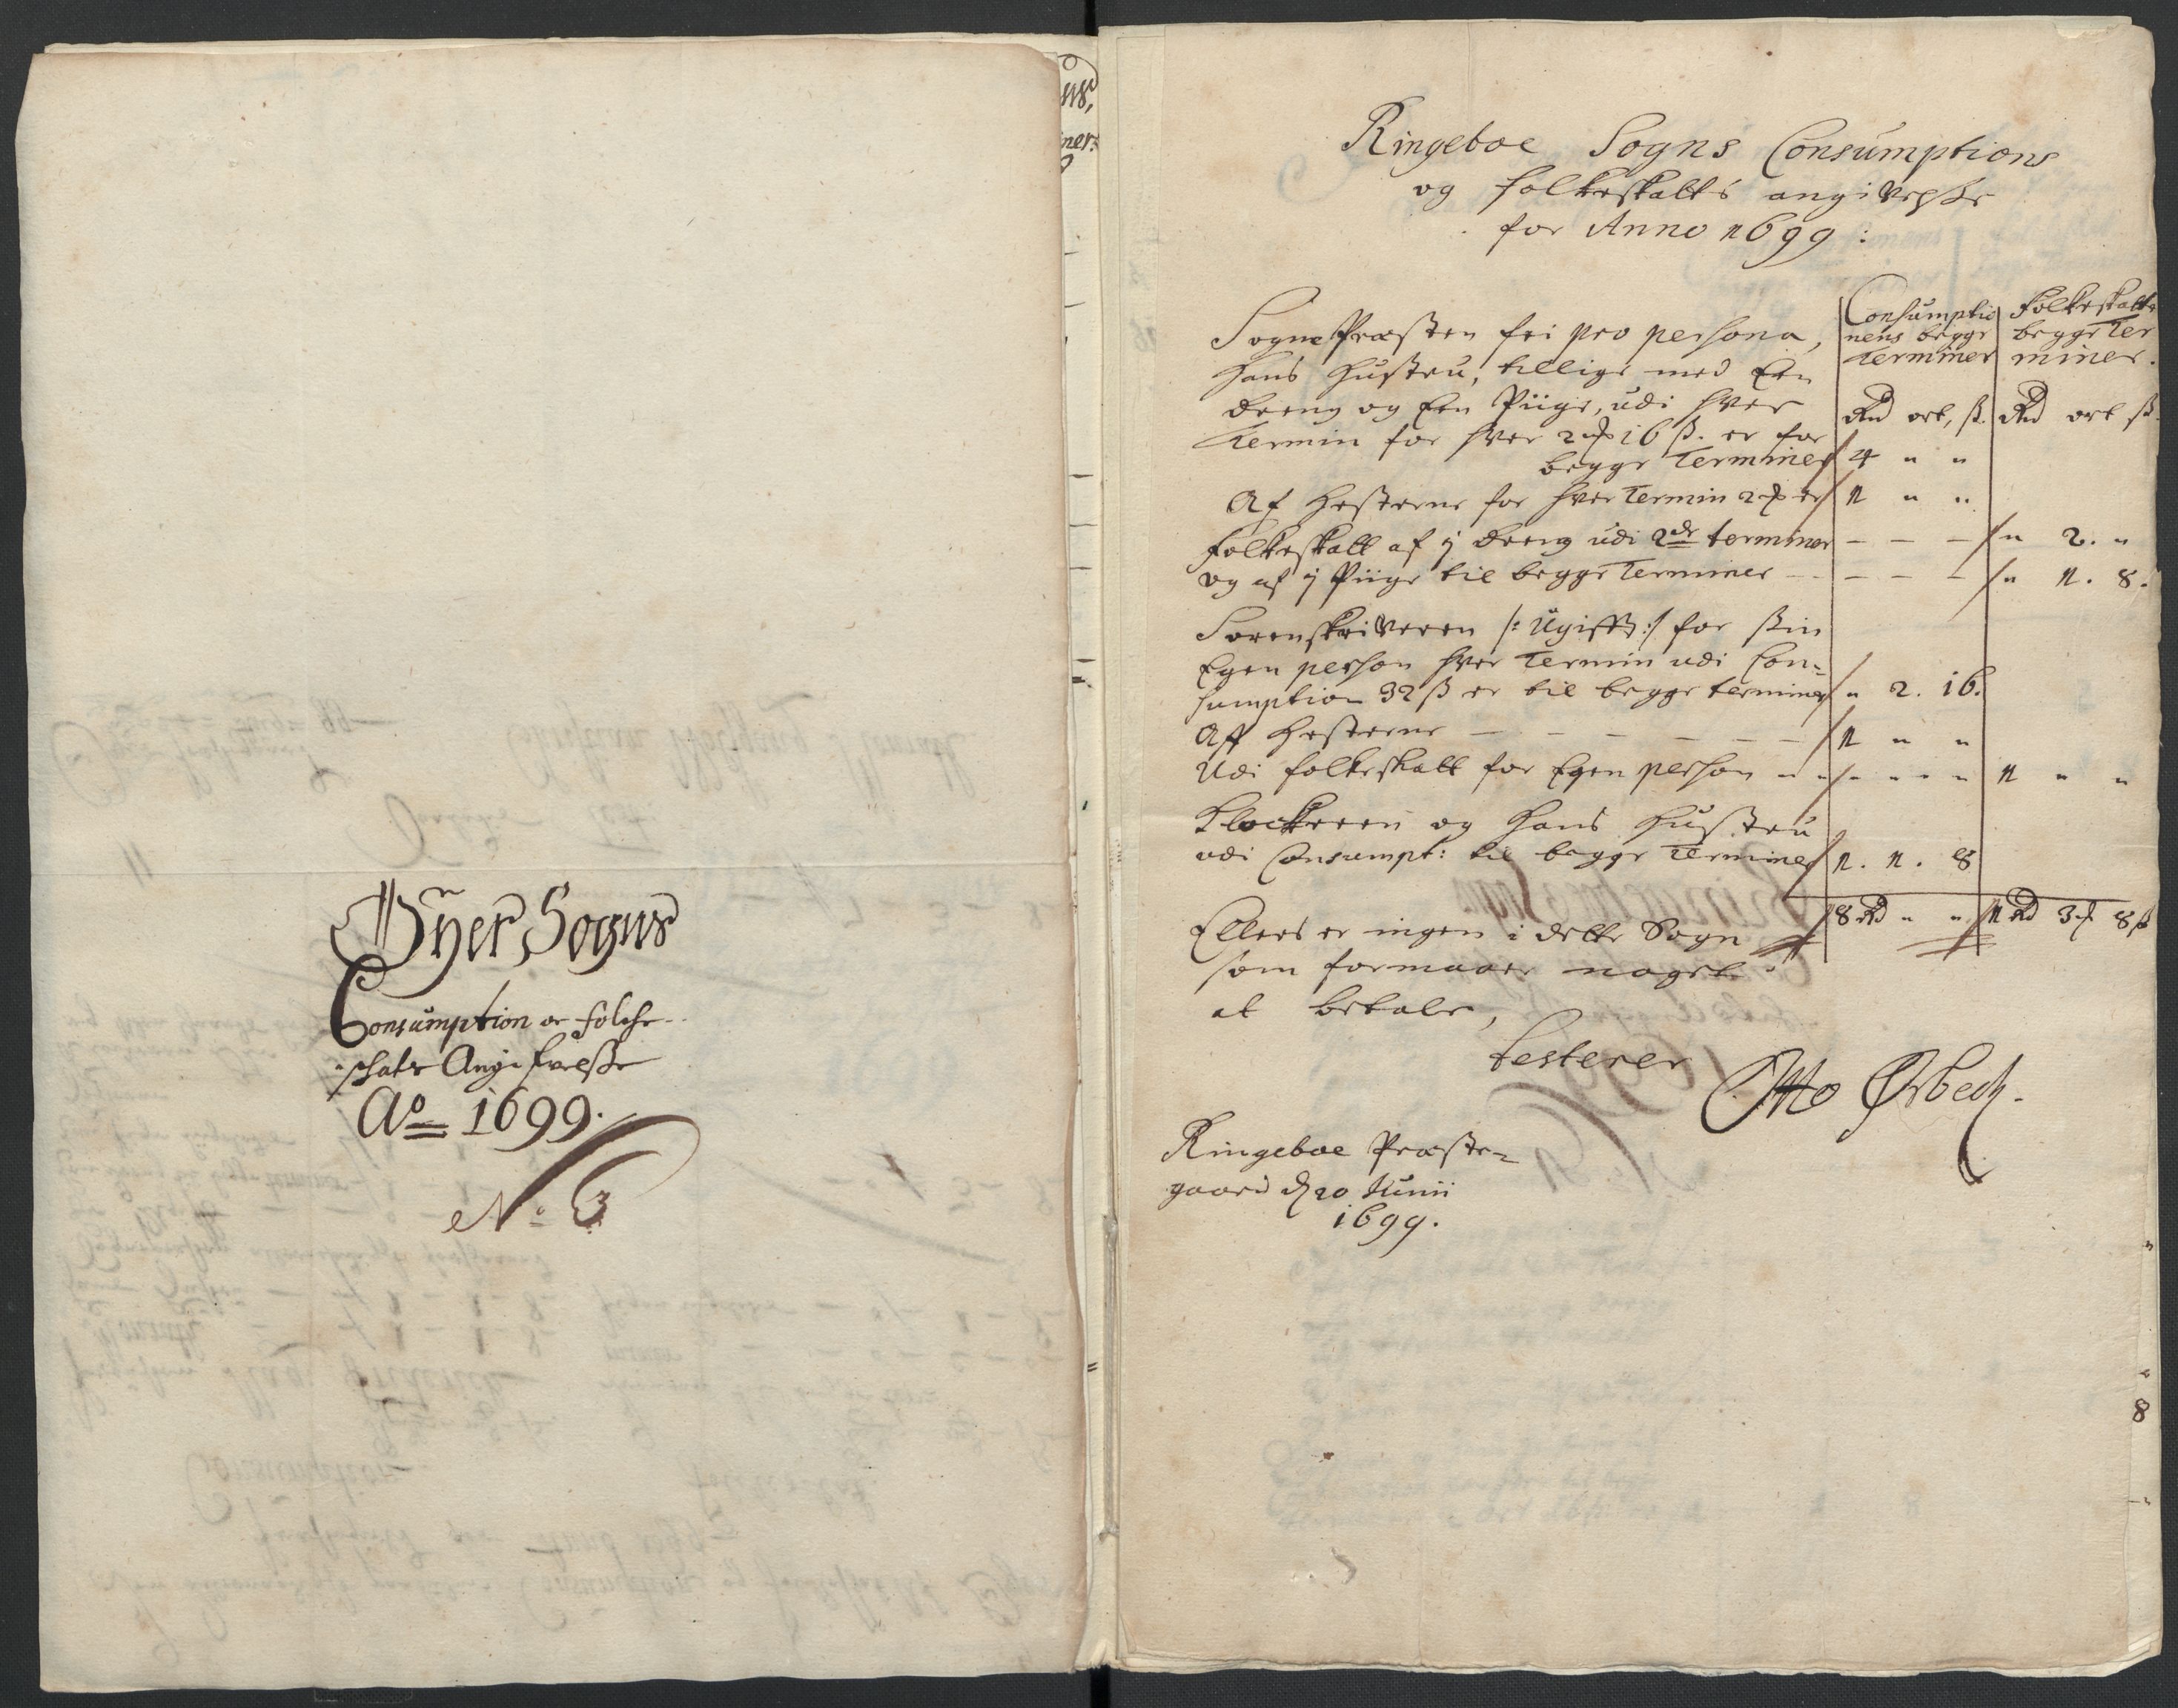 Øyer Sogns
Consumption oc folche-
schats Angifvelsse
Ao 1699.
No 3
Ringeboe Sogns Consumptions
og folkeskatts angivelsse
for Anno 1699:
Consumptio
nens begge
Terminer
Folkeskatts
begge Ter
miner.
Rd ort, ß. Rd ort ß.
SognePræsten fri pro persona,
hans hustru, tillige med Een
dreng og Een Piige, udi hver
Termin for hver 2 ort 16 ß. er for
begge Terminer 4 " "
Af hesterne for hver Termin 2 ort er 1 " "
folkeskatt af j dreng udi 2de terminer – – – " 2. "
og af j Piige til begge Terminer – – – " 1. 8.
Sorenskriveren /: Ugifft :/ for sin
Egen person hver Termin udi Con-
sumption 32 ß er til begge terminer " 2. 16.
Aff hesterne – – – – – 1 " "
Udi folkeskatt for Egen person " " " " 1 " "
Klockeren og hans hustru
udi Consumpt: til begge Terminer 1. 1. 8
8 Rd " " 1 Rd 3 ort 8 ß
Ellers er ingen i dette Sogn
som formaaer noget
at betale,
testerer
Otto Ørbech.
Ringeboe Præste-
gaard d 20 Junii
1699.